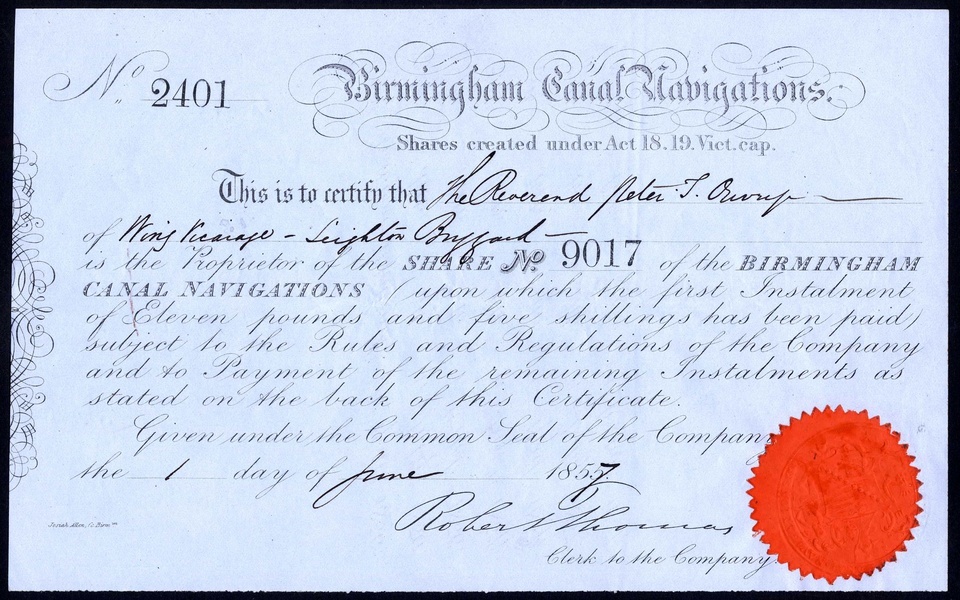 No. 2401
Birmingham Canal Navigations.
Shares created under Act 18.19. Vict. cap.
This is to certify that The Reverend Peter T. Ouvry
of Wing Vicarage - Leighton Buzzard -
is the Proprietor of the SHARE No. 9017 of the BIRMINGHAM
CANAL NAVIGATIONS (upon which the first Instalment
of Eleven pounds and five shillings has been paid)
subject to the Rules and Regulations of the Company
and to Payment of the remaining Instalments as
stated on the back of this Certificate.
Given under the Common Seal of the Company
the 1 day of June 1857
Robert Thomas
Josiah Allen, Birm.
Clerk to the Company.